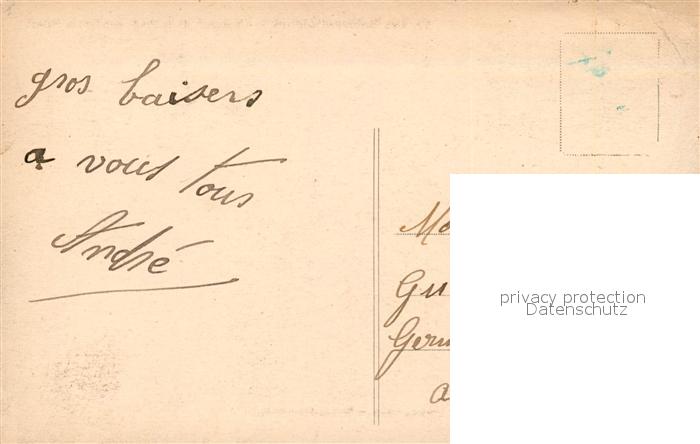 gros baisers
a vous tous
André
privacy protection
Datenschutz